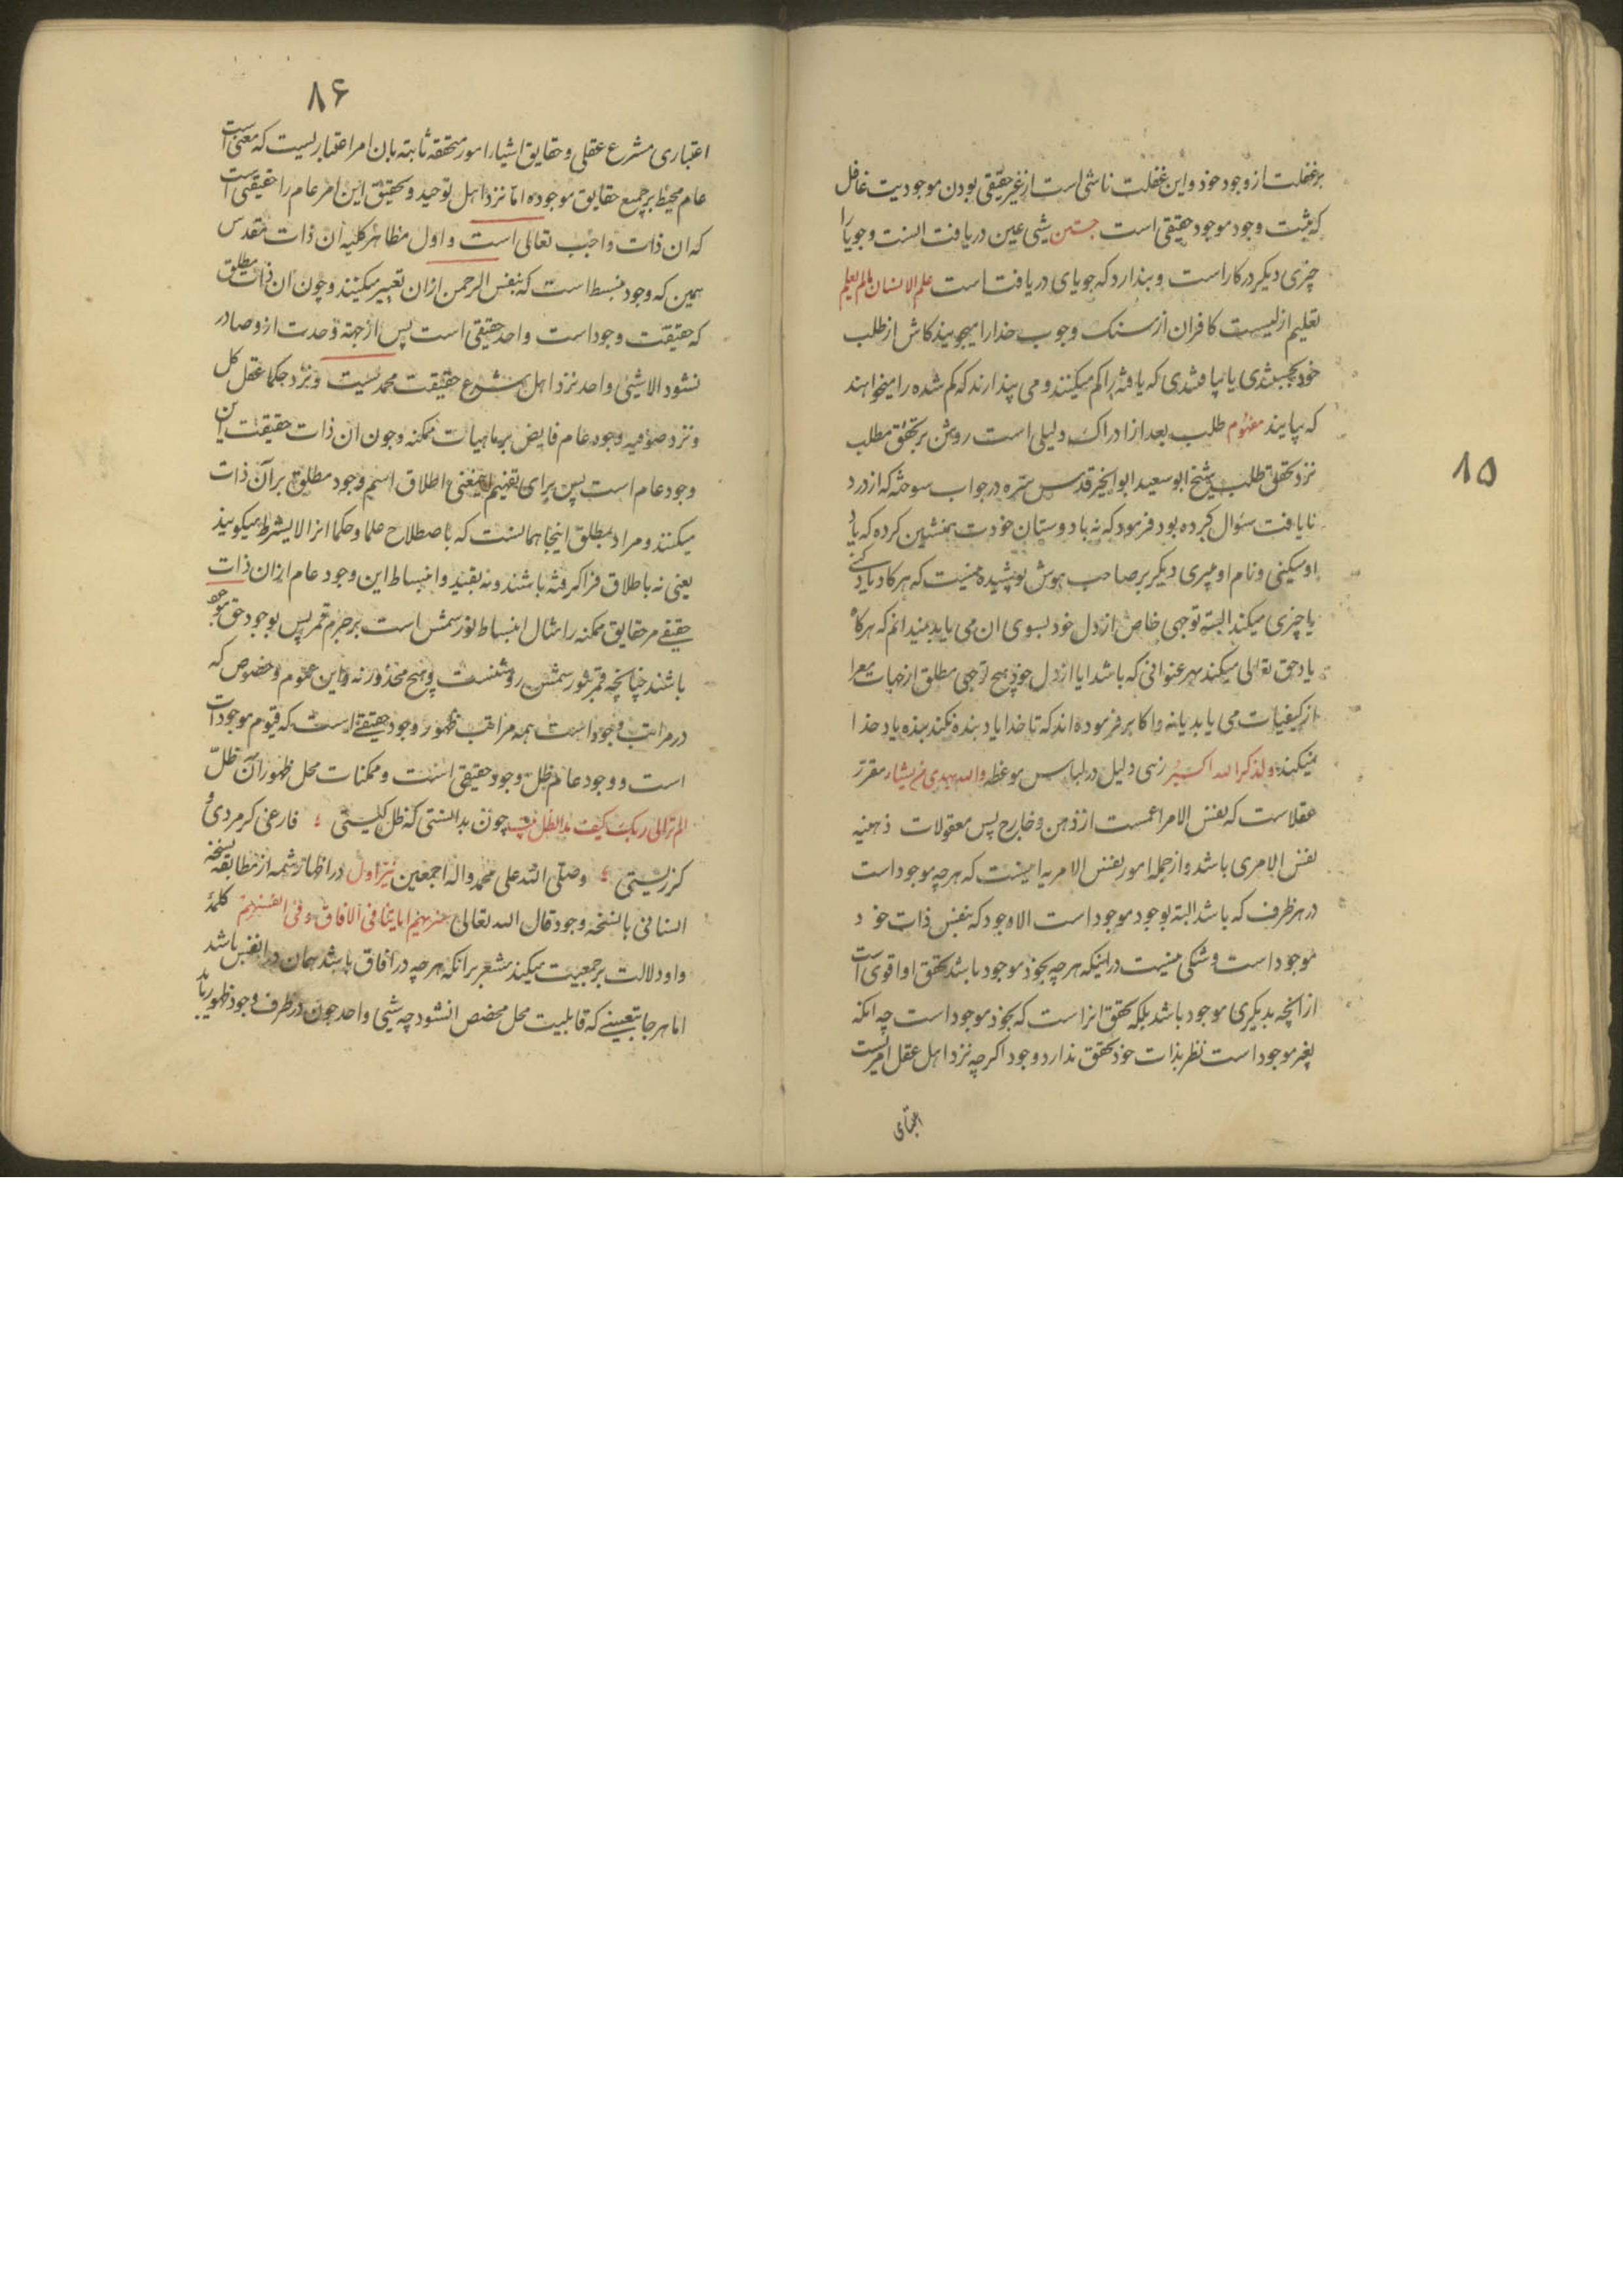 ۸۵
بر غفلت از وجود خود و این غفلت ناشی است از غیر حقیقی بودن موجودیت غافل
که مثبت وجود موجود حقیقی است جستن شیی عین دریافت انست و جویا را
چیزی دیکر در کار است و پندارد که جویای دریافت است علم الانسان مالم یعلم
تعلیم ازلیست کافران از سنک وجوب خدا را میجویند کاش از طلب
خود بجستندی یا نیافتندی که یافته را کم میکنند و می پندارند که کم شده را میخواهند
که بیابند مفهوم طلب بعد از ادراک دلیلی است روشن بر تحقق مطلب
نزد تحقق طلب شیخ ابو سعید ابو الخیر قدس سره در جواب سوخته که از درد
نایافت سئوال کرده بود فرمود که نه با دوستان خودت همنشین کرده که یاد
او میکنی و نام او میبری دیکر بر صاحب هوش پوشیده نیست که هر کاه یاد کسی
یا چیزی میکند البته توجهی خاص از دل خود بسوی ان می یابد نمیدانم که هر کاه
یاد حق تعالی میکند بهر عنوانی که باشد ایا از دل خود هیچ توجهی مطلق از جهات معرا
از کیفیات می یابد یا نه و اکابر فرموده اند که تا خدا یاد بنده نکند بنده یاد خدا
نمیکند و لذکر الله اکبر زهی دلیل در لباس موعظه والله یهدی من یشاء مقرر
عقلاست که نفس الامر اعمست از ذهن و خارج پس معقولات ذهنیه
نفس الامری باشد و از جمله امور نفس الامریه اینست که هر چه موجود است
در هر ظرف که باشد البته بوجود موجود است الا وجود که بنفس ذات خود
موجود است و شکی نیست در اینکه هر چه بخود موجود باشد تحقق او اقوی است
از انچه بدیکری موجود باشد بلکه تحقق انراست که بخود موجود است چه انکه
بغیر موجود است نظر بذات خود تحقق ندارد و وجود اکرچه نزد اهل عقل امریست
اعتباری
۸۶
اعتباری مشرع عقلی و حقایق اشیا را امور متحققه ثابته بان امر اعتباریست که معنی است
عام محیط بر جمیع حقایق موجوده اما نزد اهل توحید و تحقیق این امر عام را حقیقتی است
که ان ذات واجب تعالی است و اول مظاهر کلیه ان ذات مقدس
همین که وجود منبسط است که بنفس الرحمن ازان تعبیر میکنند و چون ان ذات مطلق
که حقیقت وجود است واحد حقیقی است پس از جهة وحدت ازو صادر
نشود الا شیئی واحد نزد اهل شرع حقیقت محمدیست و نزد حکما عقل کل
و نزد صوفیه وجود عام فایض بر ماهیات ممکنه و چون ان ذات حقیقت این
وجود عام است پس برای تفهیم اینمعنی اطلاق اسم وجود مطلق بر آن ذات
میکنند و مراد بمطلق اینجا همانست که باصطلاح علما و حکما انرا لا بشرط میکویند
یعنی نه باطلاق فراکرفته باشند و نه بقید و انبساط این وجود عام ازان ذات
حقیقی مر حقایق ممکنه را مثال انبساط نور شمس است بر جرم قمر پس بوجود حق موجود
باشند چنانچه قمر بنور شمس روشنست و هیچ محذور نه و این عموم و خصوص که
در مراتب وجود است همه مراتب ظهور وجود حقیقی است که قیوم موجودات
است و وجود عام ظل وجود حقیقی است و ممکنات محل ظهور آن ظل
الم تر الی ربک کیف مد الظل چون بدانستی که ظل کیستی ؛ فارغی کر مردی و
کر زیستی ؛ و صلی الله علی محمد و اله اجمعین نیر اول در اظهار شمه از مطابقه نسخه
انسانی با نسخه وجود قال الله تعالی سنریهم ایاتنا فی الافاق و فی انفسهم کلمه
واو دلالت بر جمعیت میکند مشعر بر انکه هر چه در افاق باشد همان در انفس باشد
اما هر جا بتعینی که قابلیت محل مخصص ان شود چه شیی واحد چون در ظرف وجود ظهور یابد